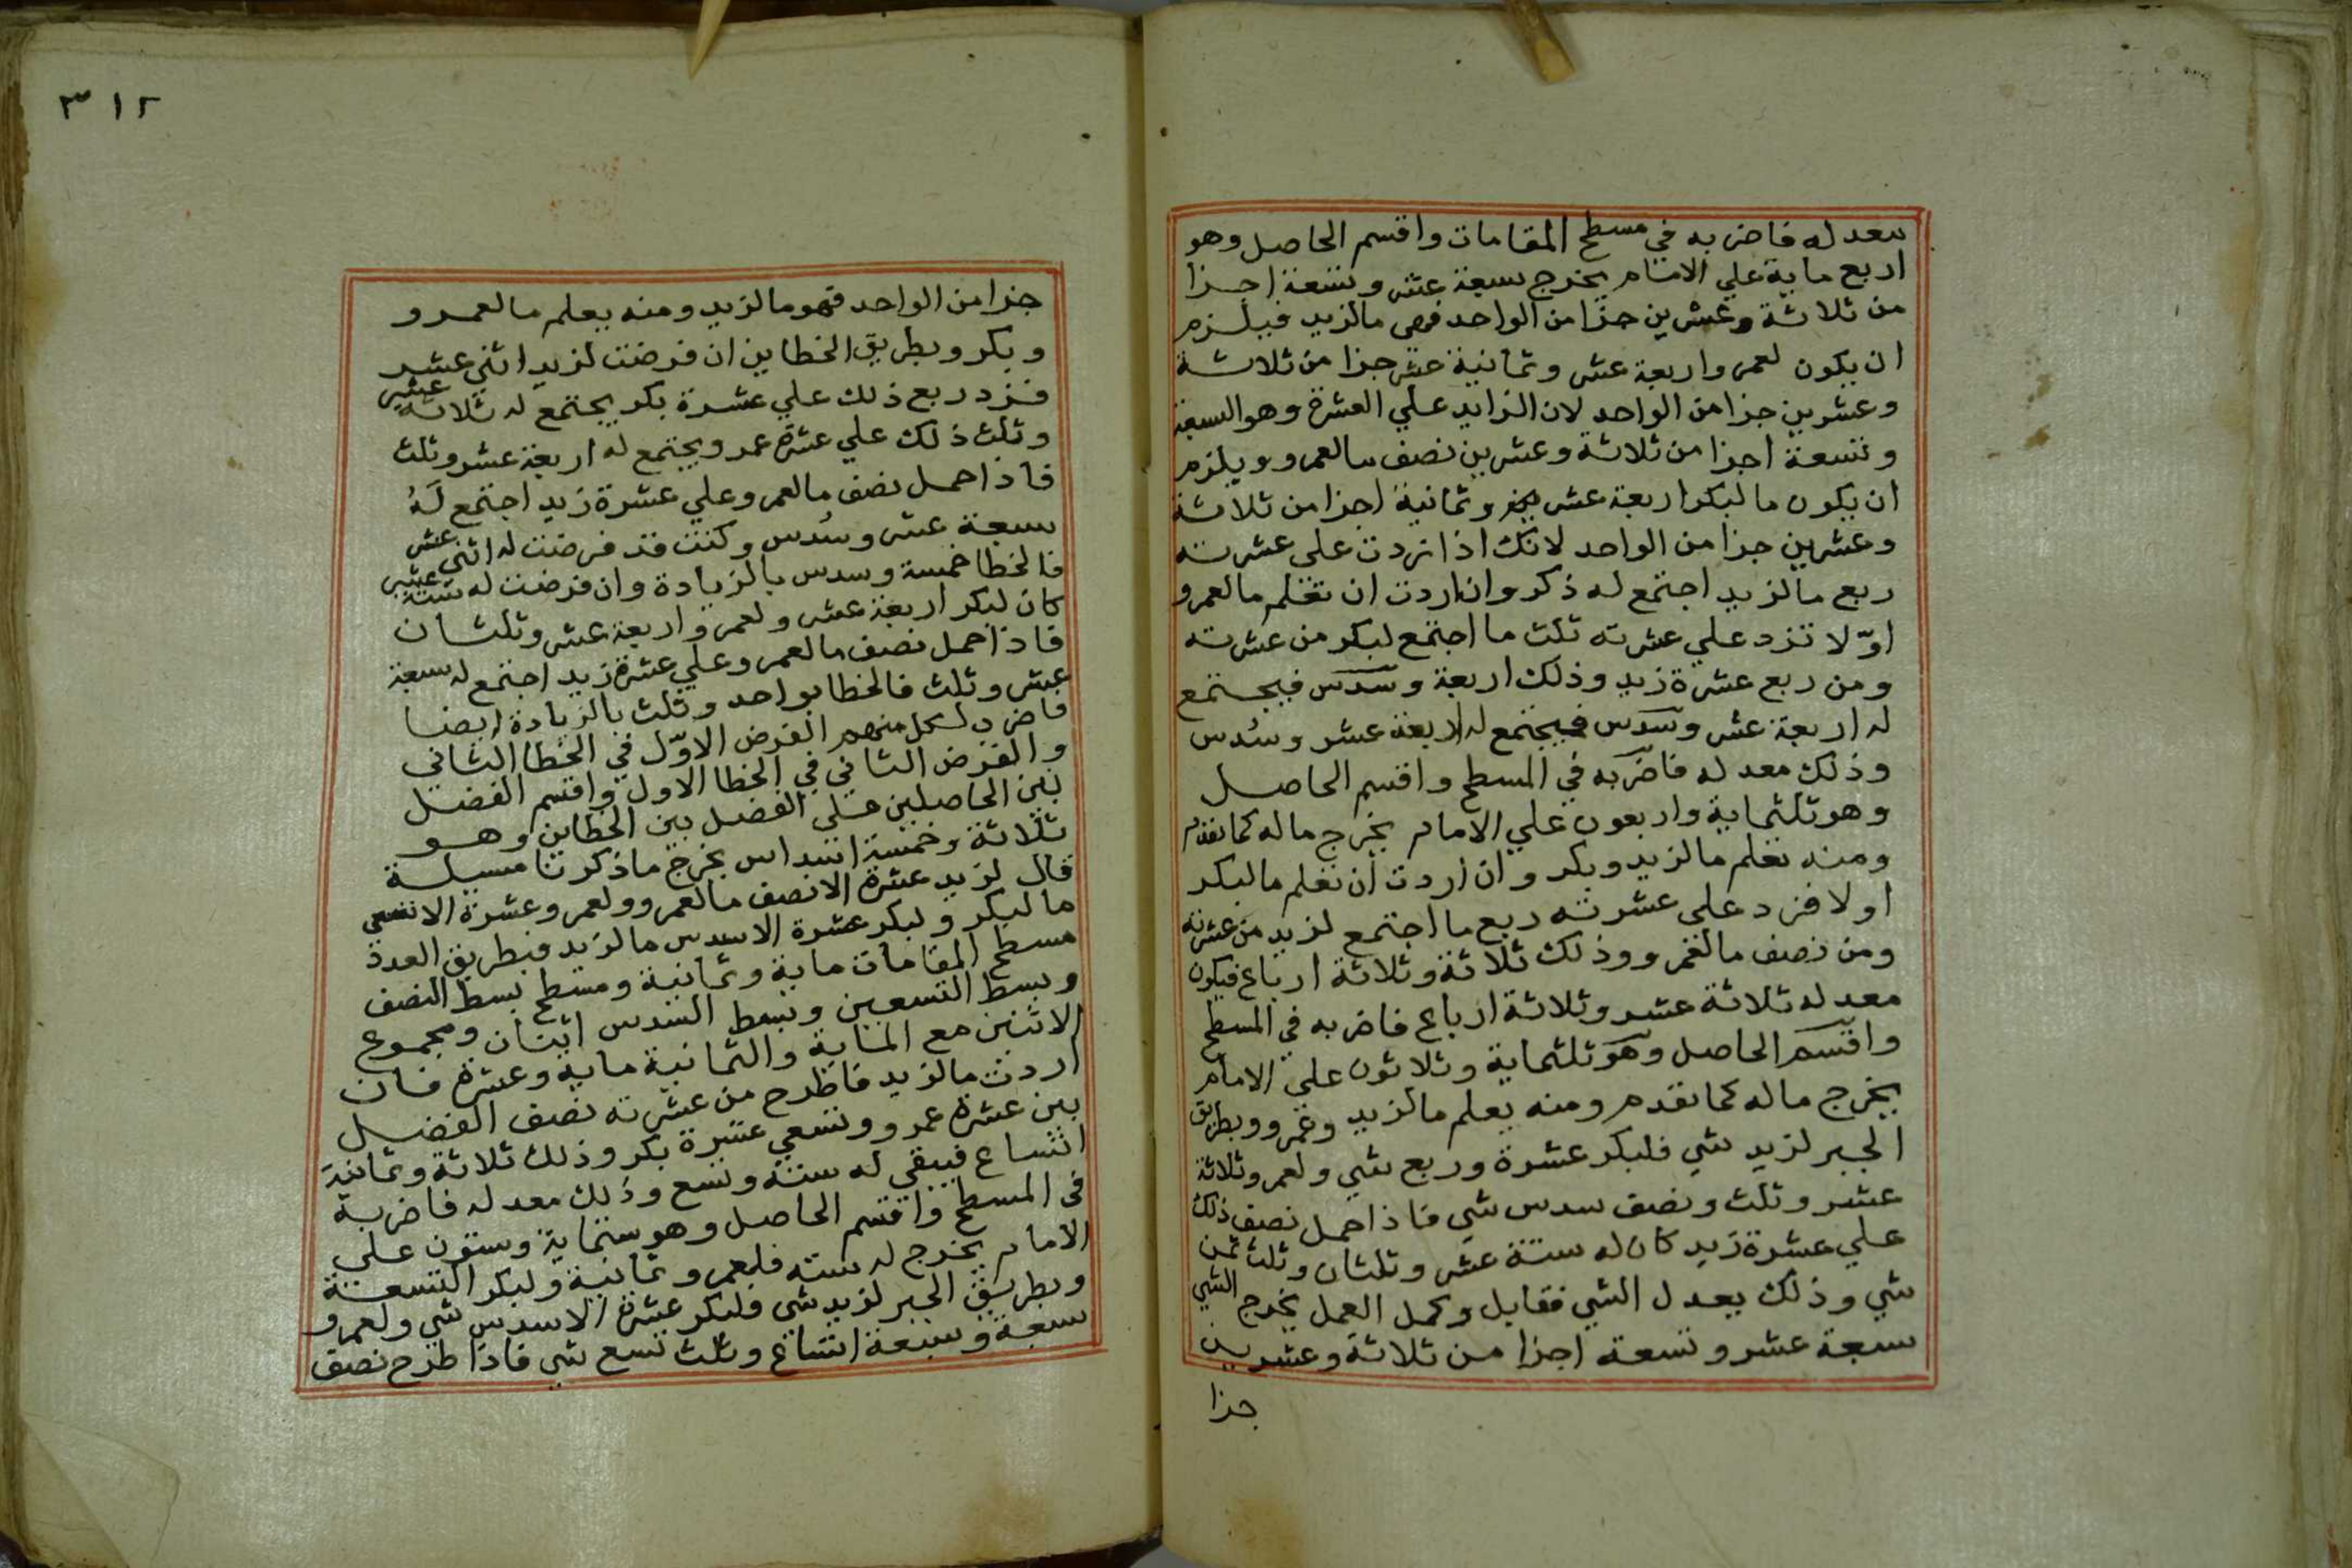 معد له فاضربه في مسطح المقامات واقسم الحاصل وهو
اربع ماية علي الامام يخرج سبعة عشر وتسعة اجزا
من ثلاثة وعشرين جزا من الواحد فهي مالزيد فيلزم
ان يكون لعمرو اربعة عشر وثمانية عشر جزا من ثلاثة
وعشرين جزا من الواحد لان الزايد علي العشرة وهو السبعة
وتسعة اجزا من ثلاثة وعشرين نصف مالعمرو ويلزم
ان يكون مالبكر اربعة عشر وثمانية اجزا من ثلاثة
وعشرين جزا من الواحد لانك اذا زدت على عشرته
ربع مالزيد اجتمع له ذكر وان اردت ان تعلم مالعمرو
اوّلا تزد علي عشرته ثلث ما اجتمع لبكر من عشرته
ومن ربع عشرة زيد وذلك اربعة وسدس فيجتمع
له اربعة عشر وسدس فيجتمع له اربعة عشر وسُدس
وذلك معد له فاضربه في المسطح واقسم الحاصل
وهو ثلثماية واربعون علي الامام يخرج ماله كما تقدم
ومنه تعلم مالزيد وبكر وان اردت ان تعلم مالبكر
اولا فزد على عشرته ربع ما اجتمع لزيد من عشرته
ومن نصف مالعمرو وذلك ثلاثة وثلاثة ارباع فيكون
معد له ثلاثة عشر وثلاثة ارباع فاضربه في المسطح
واقسم الحاصل وهو ثلثماية وثلاثون علي الامام
يخرج ماله كما تقدم ومنه يعلم مالزيد وعمرو وبطريق
الجبر لزيد شي فلبكر عشرة وربع شي ولعمرو ثلاثة
عشر وثلث ونصف سدس شي فاذا حمل نصف ذلك
علي عشرة زيد كان له ستة عشر وثلثان وثلث ثمن
شي وذلك يعدل الشي فقابل وكمل العمل يخرج الشي
سبعة عشر وتسعة اجزا من ثلاثة وعشرين
جزا
٣١٢
جزا من الواحد فهو مالزيد ومنه يعلم مالعمرو
وبكر وبطريق الخطاين ان فرضت لزيد اثني عشر
فزد ربع ذلك علي عشرة بكر يجتمع له ثلاثة عشر
وثلث ذلك علي عشرة عمرو يجتمع له اربعة عشر وثلث
فاذا حمل نصف مالعمرو علي عشرة زيد اجتمع لَهُ
سبعة عشر وسُدس وكنت قد فرضت له اثني عشر
فالخطا خمسة وسدس بالزيادة وان فرضت له ستة عشر
كان لبكر اربعة عشر ولعمرو اربعة عشر وثلثان
فاذا حمل نصف مالعمرو علي عشرة زيد اجتمع له سبعة
عشر وثلث فالخطا بواحد وثلث بالزيادة ايضا
فاضرب لكل منهم الفرض الاوّل في الخطا الثاني
والفرض الثاني في الخطا الاول واقسم الفضل
بين الحاصلين علي الفضل بين الخطاين وهو
ثلاثة وخمسة اسداس يخرج ما ذكرنا مسيلة
قال لزيد عشرة الا نصف مالعمرو ولعمرو عشرة الا تسعي
مالبكر ولبكر عشرة الا سدس مالزيد فبطريق العدة
مسطح المقامات ماية وثمانية ومسطح بسط النصف
وبسط التسعين وبسط السدس اثنان ومجموع
الاثنين مع الماية والثمانية ماية وعشرة فان
اردت مالزيد فاطرح من عشرته نصف الفضل
بين عشرة عمرو وتسعي عشرة بكر وذلك ثلاثة وثمانية
اتساع فيبقي له ستة وتسع وذلك معد له فاضربه
في المسطح واقسم الحاصل وهو ستماية وستون علي
الامام يخرج له سته فلعمرو ثمانية ولبكر التسعة
وبطريق الجبر لزيد شي فلبكر عشرة الا سدس شي ولعمرو
سبعة وسبعة اتساع وثلث تسع شي فاذا طرح نصف